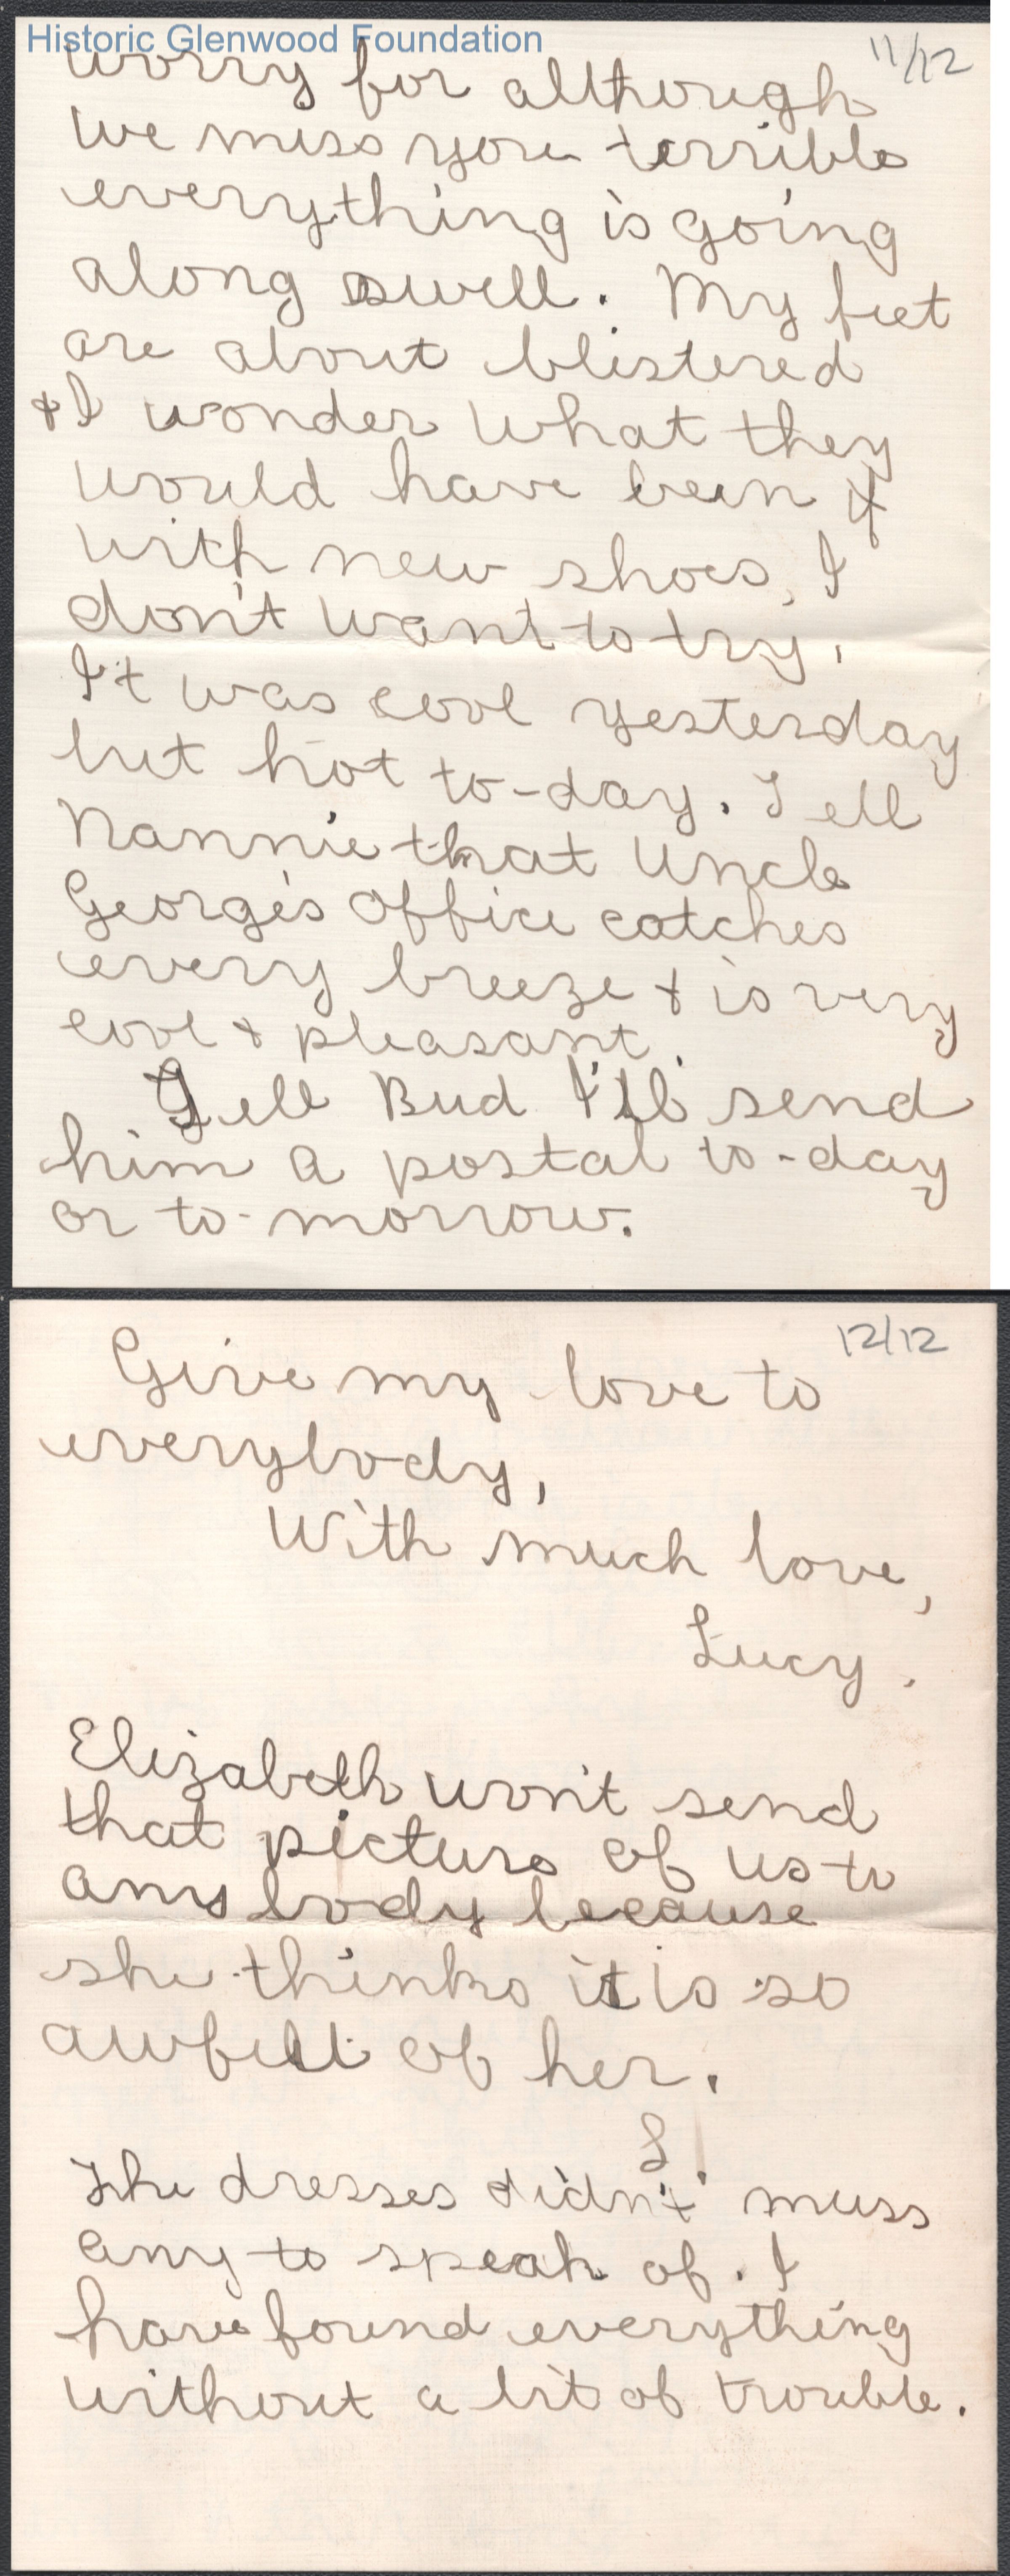 Historic Glenwood Foundation
11/12
worry for although
we miss you terrible
everything is going
along swell. My feet
are about blistered
+ I wonder what they
would have been if
with new shoes, I
don't want to try.
It was cool yesterday
but hot to-day. Tell
Nannie that Uncle
George's office catches
every breeze + is very
cool + pleasant.
Tell Bud I'll send
him a postal to-day
or to-morrow.
12/12
Give my love to
everybody,
With much love,
Lucy.
Elizabeth won't send
that picture of us to
anybody because
she thinks it is so
awful of her.
L
The dresses didn't muss
any to speak of. I
have found everything
without a bit of trouble.